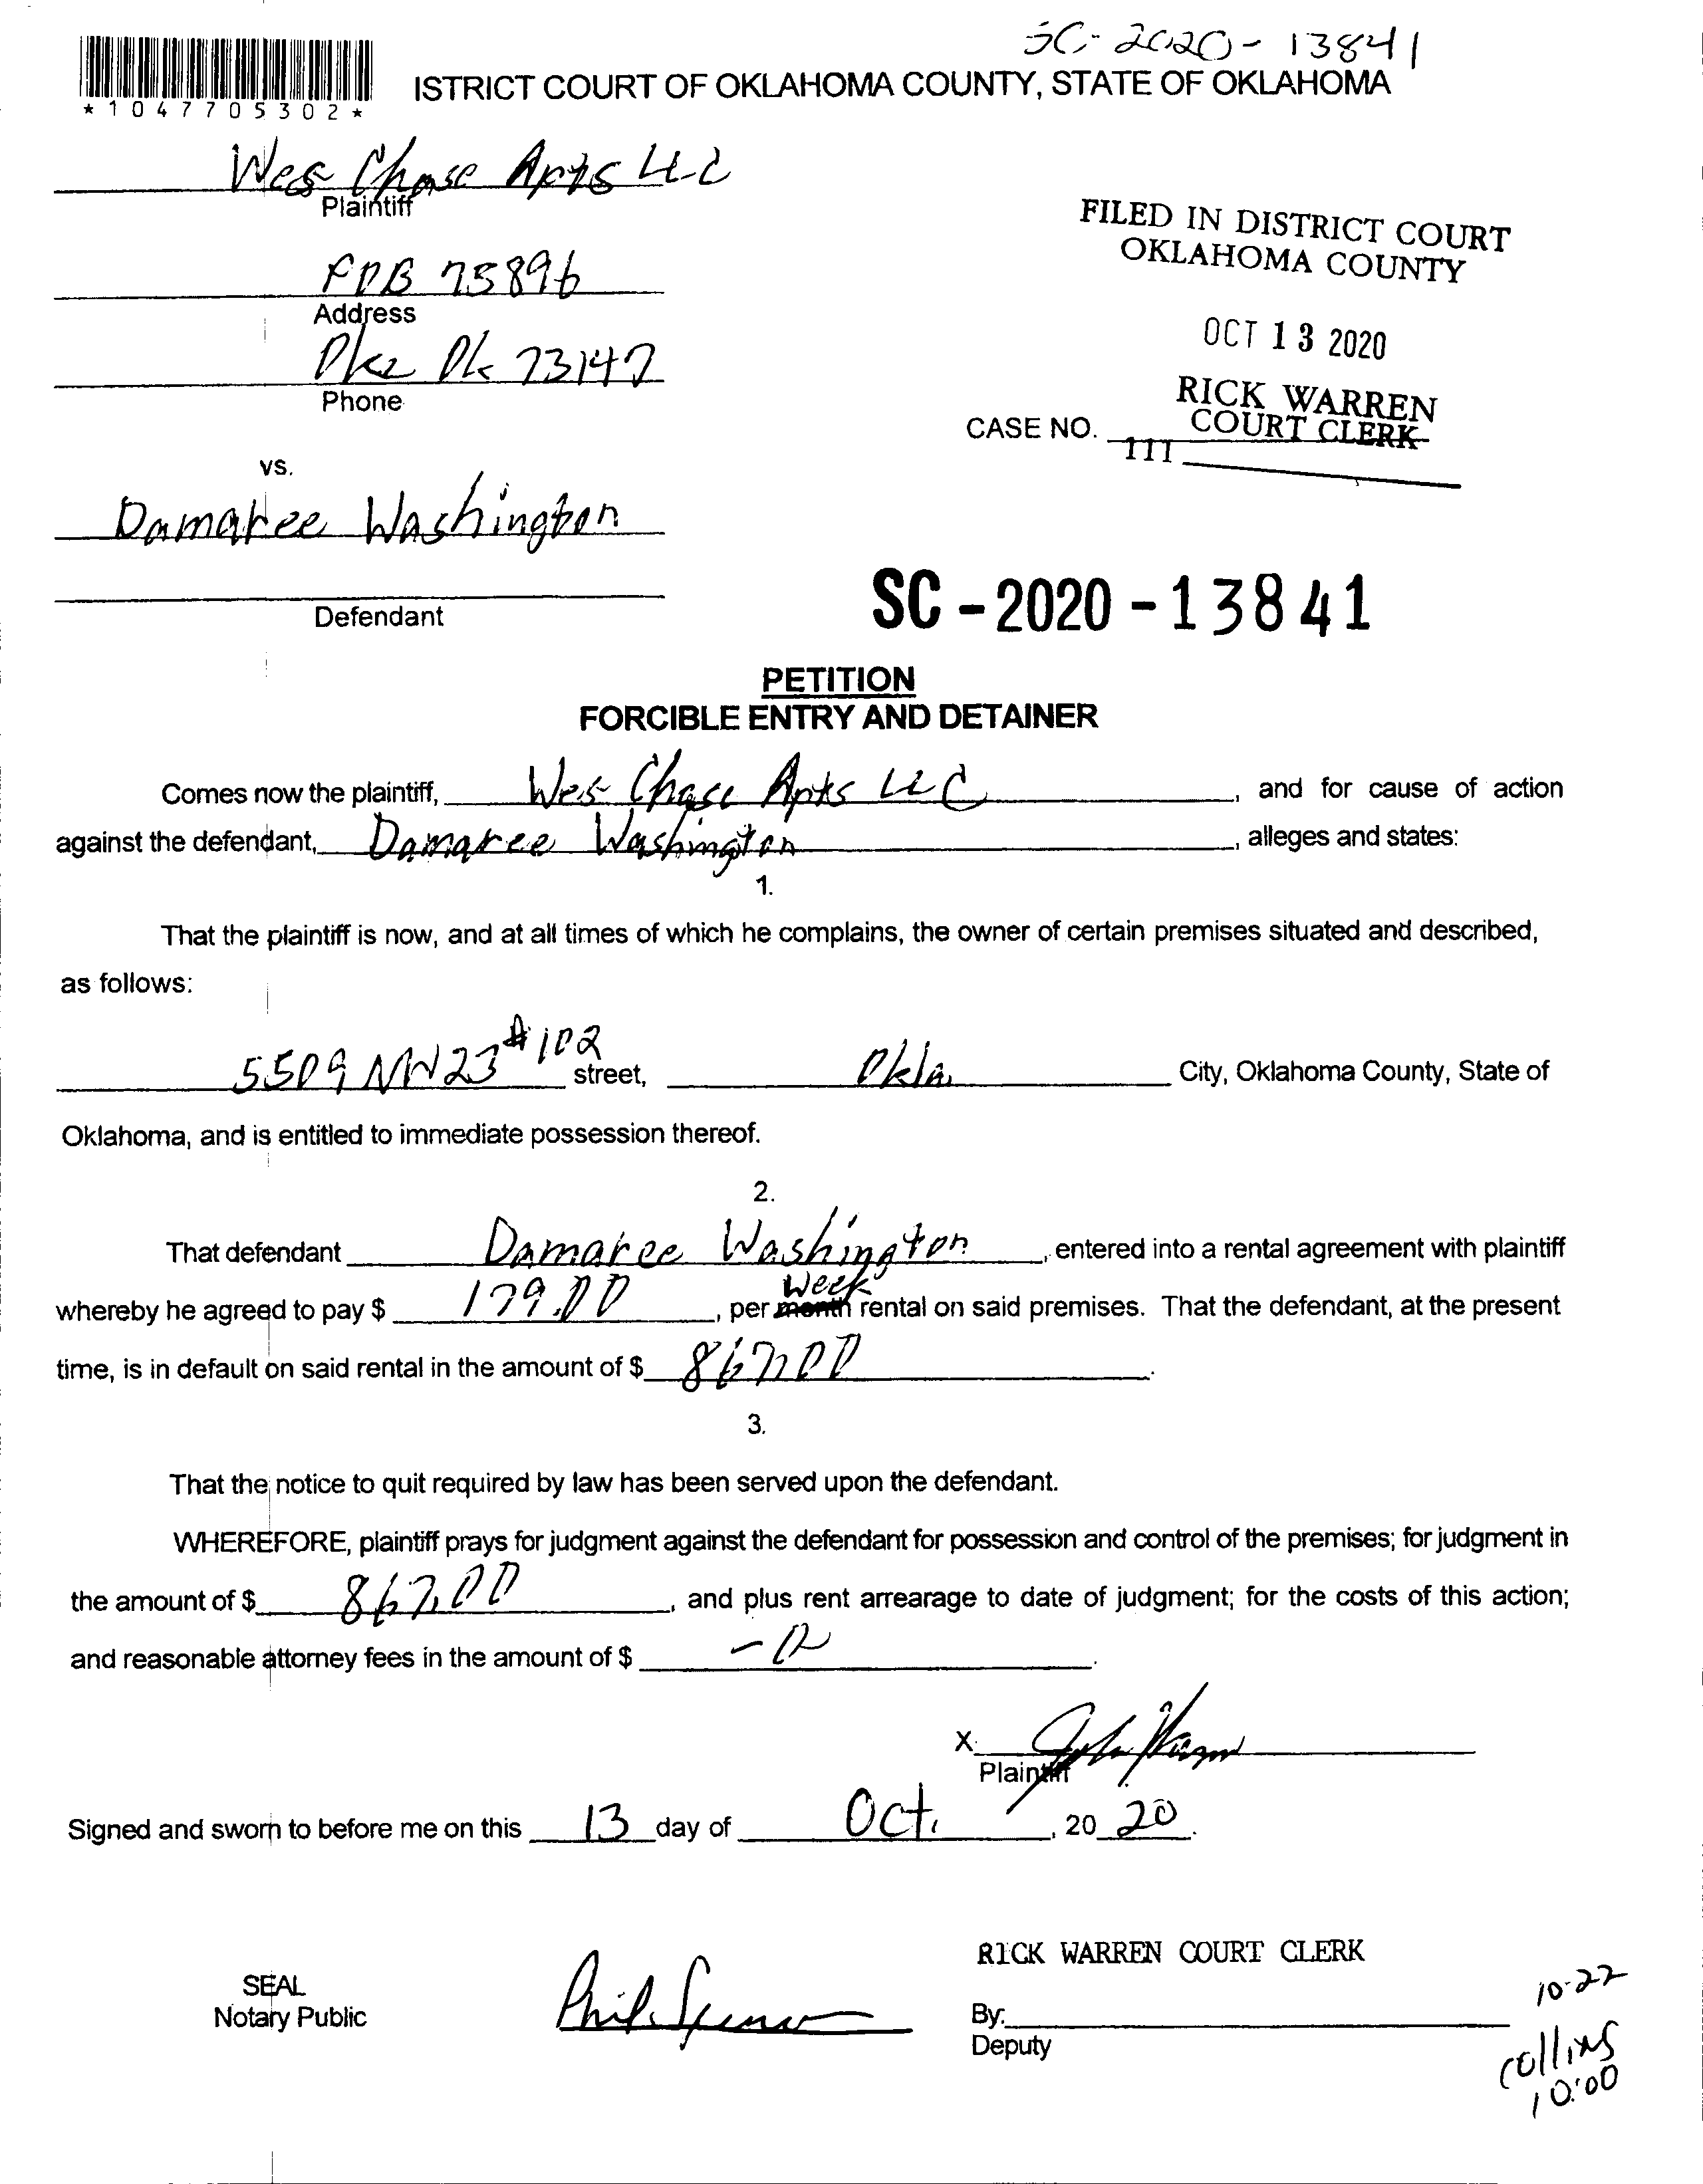 SC-2020-13841
ISTRICT COURT OF OKLAHOMA COUNTY, STATE OF OKLAHOMA
*1047705302*
Wes Chase Apts LLC
Plaintiff
FILED IN DISTRICT COURT
OKLAHOMA COUNTY
75896
Address
OCT 13 2020
Okc Ok 73147
Phone
RICK WARREN
COURT CLERK
CASE NO.
111
vs.
Damaree Washington
Defendant
SC-2020-13841
PETITION
FORCIBLE ENTRY AND DETAINER
Comes now the plaintiff, Wes Chase Apts LLC, and for cause of action
against the defendant, Damaree Washington, alleges and states:
1.
That the plaintiff is now, and at all times of which he complains, the owner of certain premises situated and described,
as follows:
5509 NW 23 #102 street, Okla. City, Oklahoma County, State of
Oklahoma, and is entitled to immediate possession thereof.
2.
That defendant Damaree Washington, entered into a rental agreement with plaintiff
Week
whereby he agreed to pay $ 179.00, per month rental on said premises. That the defendant, at the present
time, is in default on said rental in the amount of $ 867.00.
3.
That the notice to quit required by law has been served upon the defendant.
WHEREFORE, plaintiff prays for judgment against the defendant for possession and control of the premises; for judgment in
the amount of $ 867.00, and plus rent arrearage to date of judgment; for the costs of this action;
and reasonable attorney fees in the amount of $ -0.
X
Plaintiff
Signed and sworn to before me on this 13 day of Oct., 20 20.
RICK WARREN COURT CLERK
SEAL
Notary Public
By:
Deputy
10-22
Collins
10:00